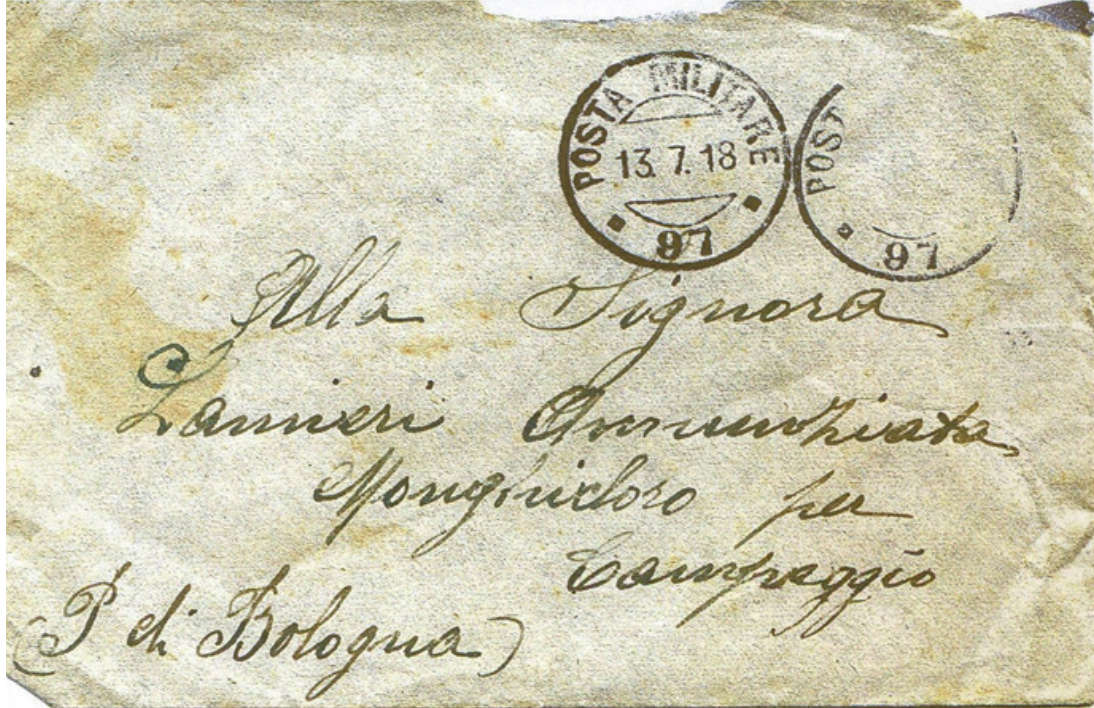 POSTA MILITARE
13.7.18
97
POST
97
Alla Signora
Lannieri Annunziata
Monghidoro per
Campeggio
(P di Bologna)